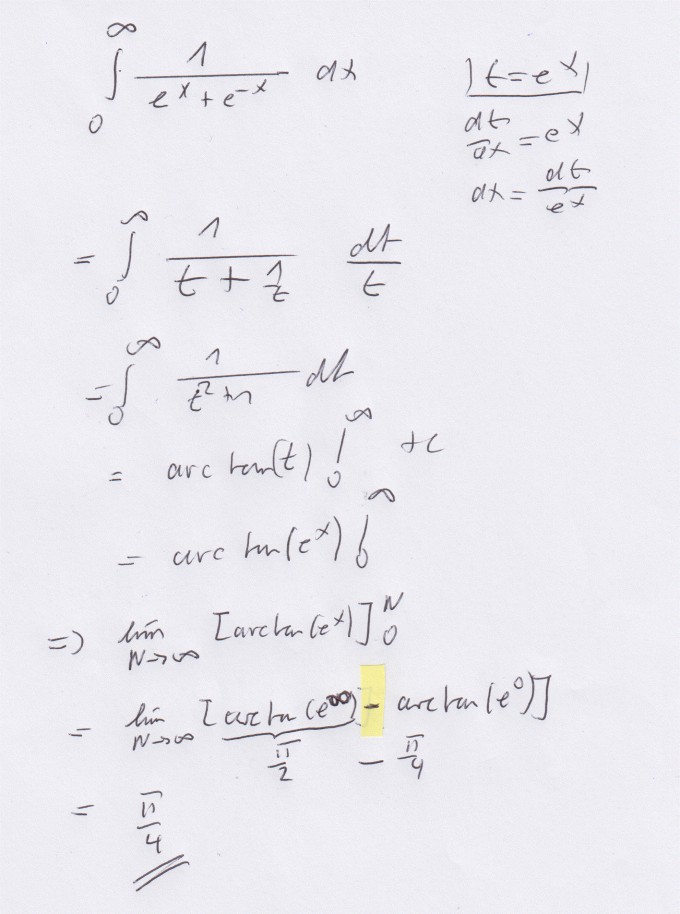 ∫₀^∞ 1/(e^x + e^-x) dx
|t = e^x|
dt/dx = e^x
dx = dt/e^x
= ∫₀^∞ 1/(t + 1/t) dt/t
= ∫₀^∞ 1/(t² + 1) dt
= arctan(t) |₀^∞ + c
= arctan(e^x) |₀^∞
=> lim N→∞ [arctan(e^x)]₀^N
= lim N→∞ [arctan(e^∞) - arctan(e^0)]
π/2 - π/4
= π/4